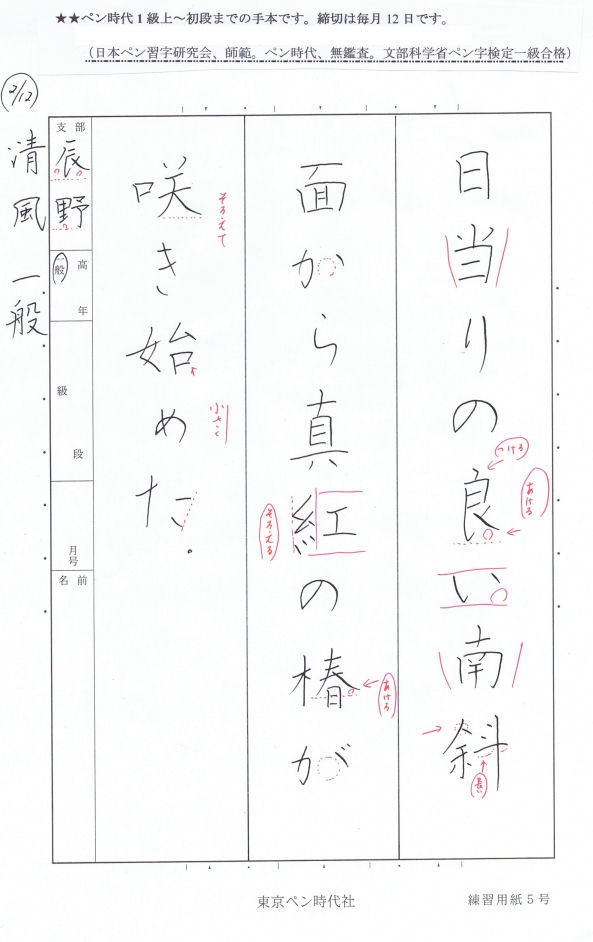 ★★ペン時代1級上～初段までの手本です。締切は毎月12日です。
（日本ペン習字研究会、師範。ペン時代、無鑑査。文部科学省ペン字検定一級合格）
日当りの良い南斜
つける
あける
長い
面から真紅の椿が
そろえる
あける
咲き始めた。
そろえて
小さく
支部
辰野
一般
高
年
級
段
月号
名前
清風 一般
東京ペン時代社
練習用紙5号